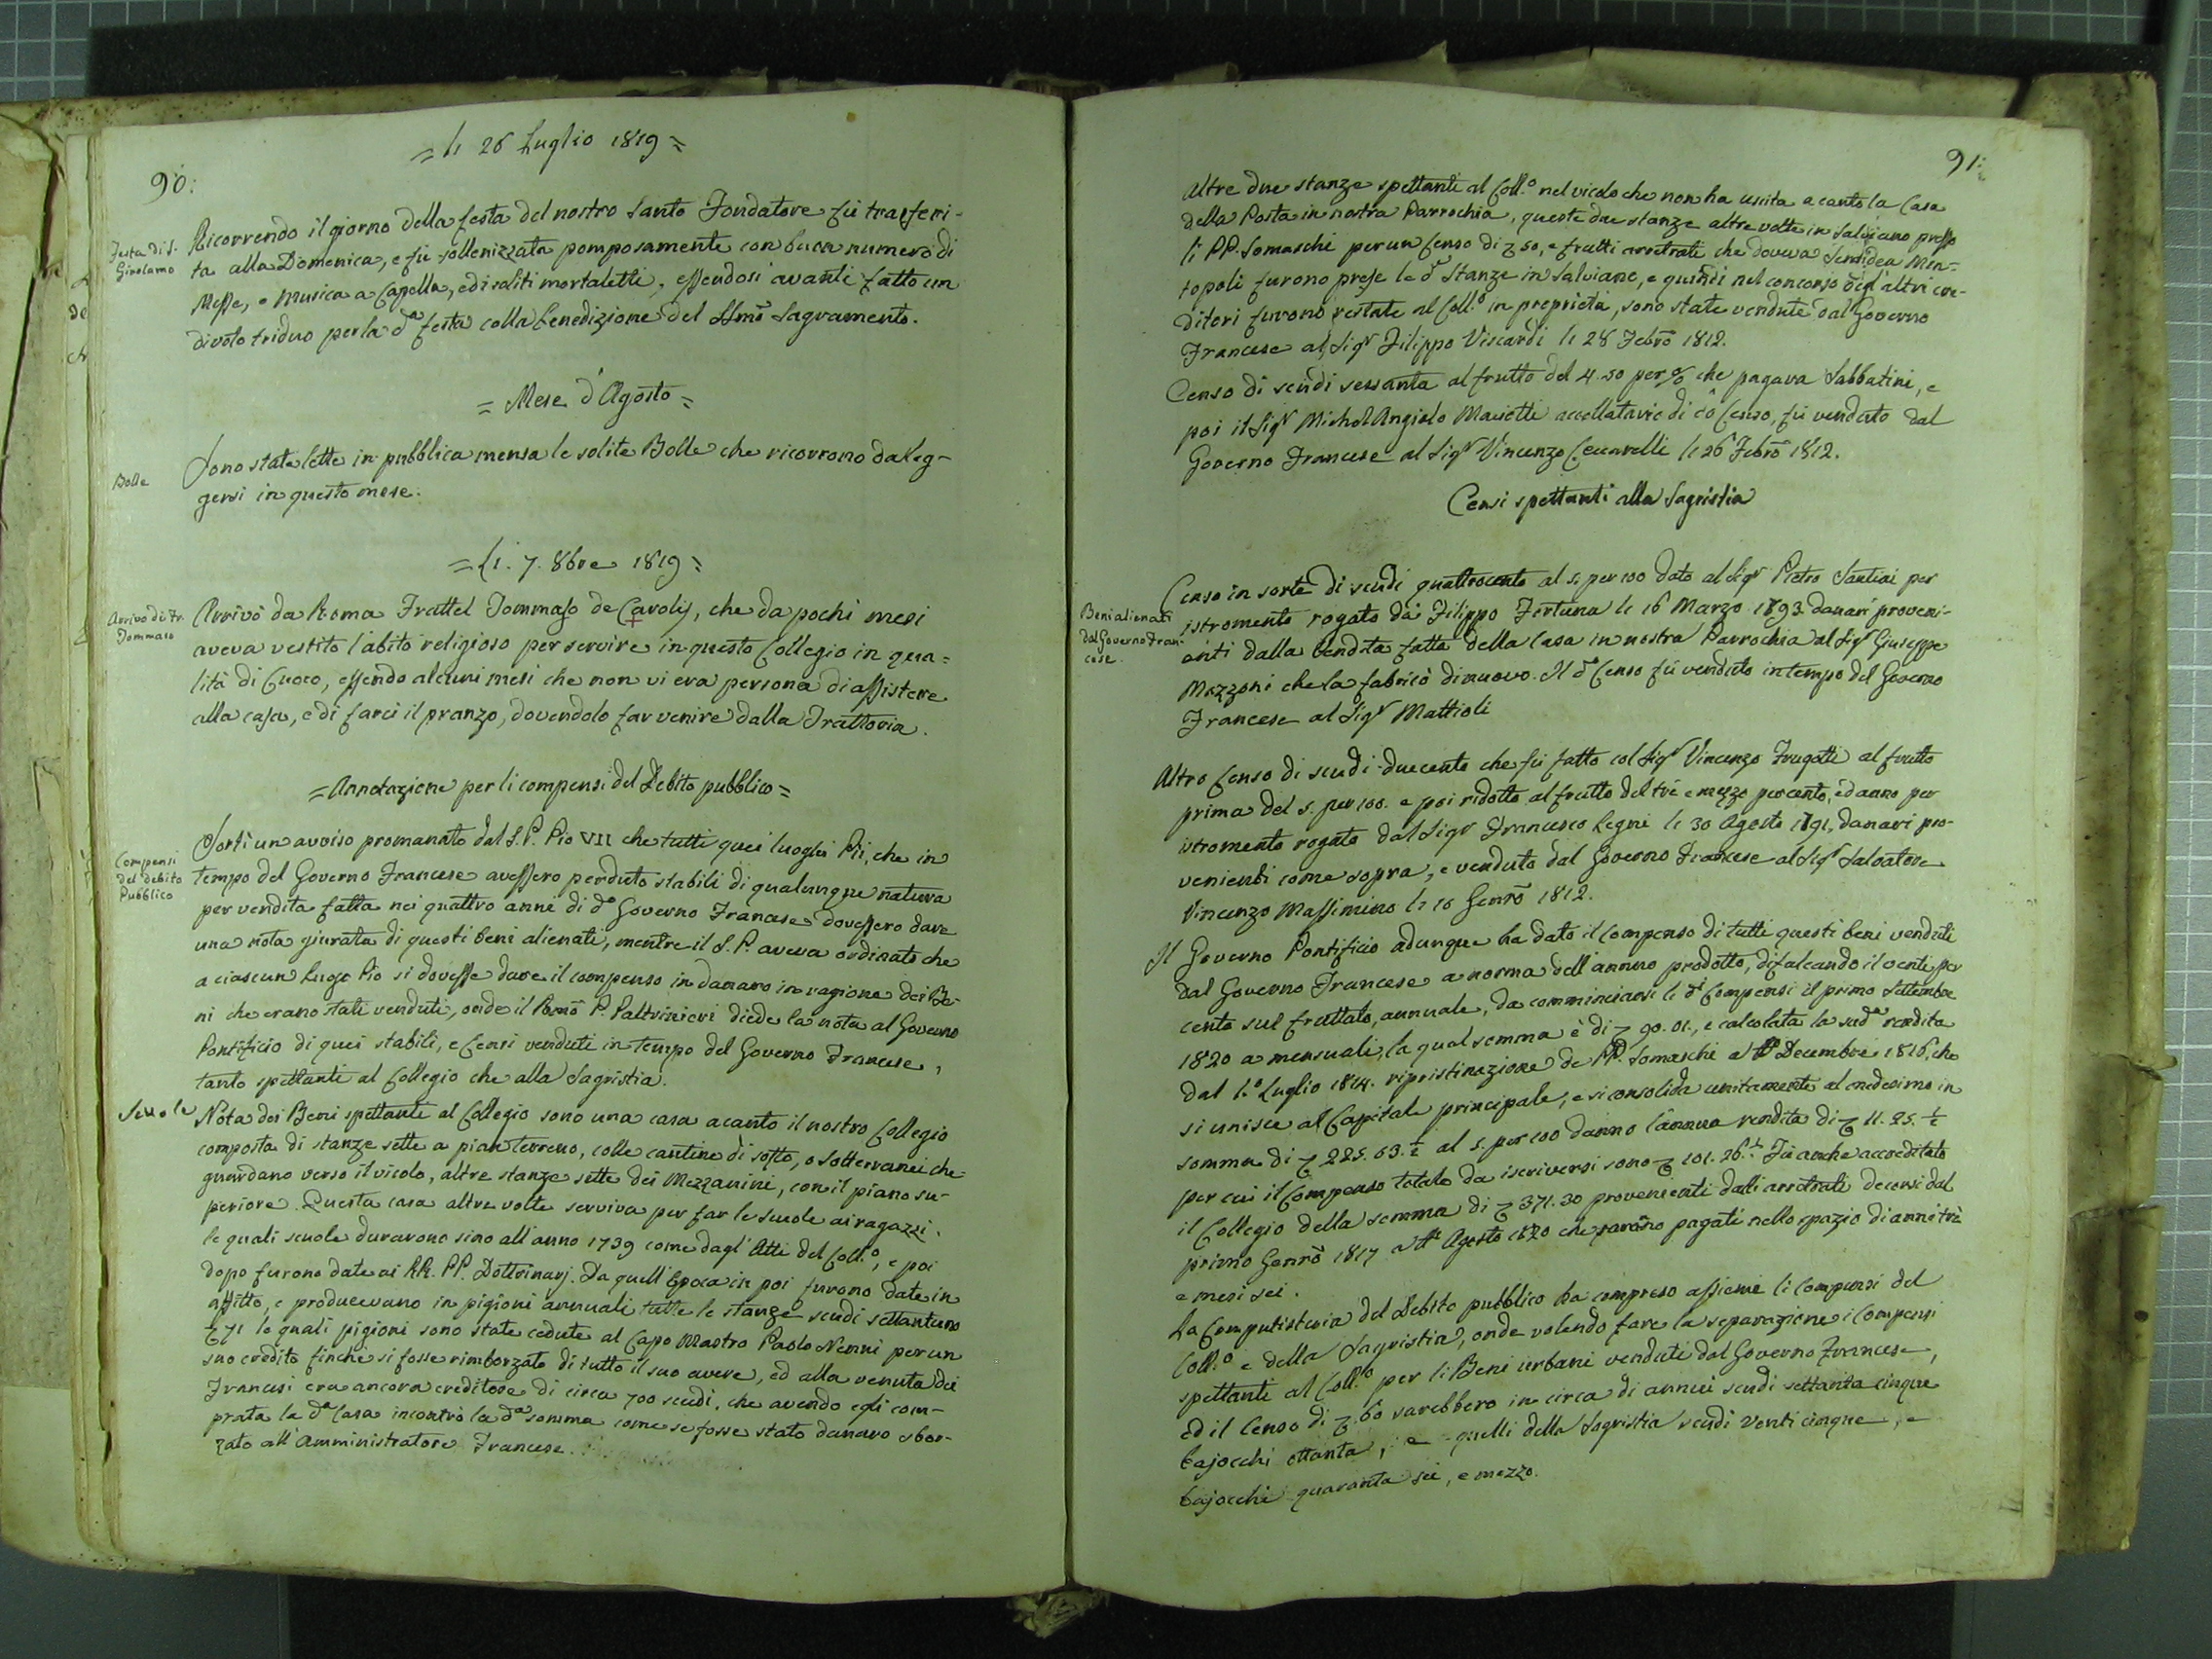 90:
= li 26 Luglio 1819 =
Festa di S.
Girolamo
Ricorrendo il giorno della festa del nostro Santo Fondatore fù trasferi-
ta alla Domenica, e fù sollenizzata pomposamente con buon numero di
Messe, e Musica a Capella, ed i soliti mortaletti, essendosi avanti fatto un
divoto triduo per la d.a festa colla benedizione del SSmo Sagramento.
= Mese d'Agosto =
Bolle
Sono state lette in pubblica mensa le solite Bolle che ricorrono da leg-
gersi in questo mese.
= Li. 7. 8bre 1819 =
Arrivo di Fr.
Tommaso
Arrivò da Roma Frattel Tommaso de Carolis, che da pochi mesi
aveva vestito l'abito religioso per servire in questo Collegio in qua=
lità di Cuoco, essendo alcuni mesi che non vi era persona di assistere
alla casa, e di farci il pranzo, dovendolo far venire dalla Trattoria.
= Annotazione per li compensi del Debito pubblico =
Compensi
del debito
Pubblico
Sortì un avviso promanato dal S.P. Pio VII che tutti quei luoghi Pii, che in
tempo del Governo Francese avessero perduto stabili di qualunque natura
per vendita fatta nei quattro anni di d.o Governo Francese dovessero dare
una nota giurata di questi beni alienati, mentre il S.P. aveva ordinato che
a ciascun Luogo Pio si dovesse dare il compenso in danaro in ragione dei Be-
ni che erano stati venduti, onde il P. Paltrinieri diede la nota al Governo
Pontificio di quei stabili, e Censi venduti in tempo del Governo Francese,
tanto spettanti al Collegio che alla Sagristia.
Scuole
Nota dei Beni spettanti al Collegio sono una casa acanto il nostro Collegio
composta di stanze sette a pian terreno, colle cantine di sotto, o sotterranei che
guardano verso il vicolo, altre stanze sette dei Mezzanini, con il piano su-
periore. Questa casa altre volte serviva per far le scuole ai ragazzi,
le quali scuole durarono sino all'anno 1739 come dagl'Atti del Coll.o, e poi
dopo furono date ai RR. PP. Dottrinarj. Da quell'Epoca in poi furono date in
affitto, e producevano in pigioni annuali tutte le stanze scudi settantuno
71 le quali pigioni sono state cedute al Capo Mastro Paolo Nenni per un
suo credito finchè si fosse rimborzato di tutto il suo avere, ed alla venuta dei
Francesi era ancora creditore di circa 700 scudi, che avendo egli com-
prata la d.a Casa incontrò la d.a somma come se fosse stato danaro sbor-
zato all'Amministratore Francese.
91:
Altre due stanze spettanti al Coll.o nel vicolo che non ha uscita acanto la Casa
della Posta in nostra Parrochia, queste due stanze altre volte in Salviano presso
li PP. Somaschi per un Censo di 50, e frutti arretrati che doveva
furono prese le d.e Stanze in Salviano, e quindi nel concorso degl'altri cre-
ditori furono restate al Coll.o in proprietà, sono state vendute dal Governo
Francese al Sigr Filippo Viscardi li 28 Febro 1812.
Censo di scudi sessanta al frutto del 4.50 per % che pagava Sabbatini, e
poi il Sigr Michel Angiolo accollatario di Censo, fù venduto dal
Governo Francese al Sigr Vincenzo Ceccarelli li 26 Febro 1812.
Censi spettanti alla Sagristia
Beni alienati
dal Governo Fran-
cese.
Censo in sorte di scudi quattrocento al 5. per 100 dato al Sigr Pietro Santini per
istromento rogato da Filippo Fortuna li 16 Marzo 1793 danari proveni-
enti dalla vendita fatta della Casa in nostra Parrochia al Sigr Giuseppe
Mazzoni che la fabricò di nuovo. Il d.o Censo fù venduto in tempo del Governo
Francese al Sigr Mattioli
Altro Censo di scudi duecento che fù fatto col Sigr Vincenzo Frugotti al frutto
prima del 5. per 100. e poi ridotto al frutto del trè e mezzo per cento, ed anno per
istromento rogato dal Sigr Francesco Legni li 30 Agosto 1791, danari pro-
venienti come sopra, e venduto dal Governo Francese al Sigr Salvatore
Vincenzo Massimino li 10 Genro 1812.
Il Governo Pontificio adunque ha dato il Compenso di tutti questi beni venduti
dal Governo Francese a norma dell'annuo prodotto, difalcando il venti per
cento sul fruttato, annuale, da comminciarsi li d.i Compensi il primo Settembre
1820 a mensuali, la qual somma è di 90.01., e calcolata la sud.a rendita
dal 1.o Luglio 1814. ripristinazione de PP. Somaschi a tto Decembre 1816, che
si unisce al Capitale principale, e si consolida unitamente al medesimo in
somma di 225. 03. ½ al 5. per 100 danno l'annua rendita di 11. 25. ½
per cui il Compenso totale da iscriversi sono 101. 26. ½ Fù anche accreditato
il Collegio della somma di 371. 30 provenienti dalli arretrati decorsi dal
primo Genro 1817 a tto Agosto 1820 che saranno pagati nello spazio di anni trè
e mesi sei.
La Computisteria del Debito pubblico ha compreso assieme li Compensi del
Coll.o e della Sagristia, onde volendo fare la separazione i Compensi
spettanti al Coll.o per li Beni urbani venduti dal Governo Francese,
ed il Censo di 60 sarebbero in circa di annui scudi settanta cinque
bajocchi ottanta, e quelli della Sagristia scudi venti cinque, e
bajocchi quaranta sei, e mezzo.